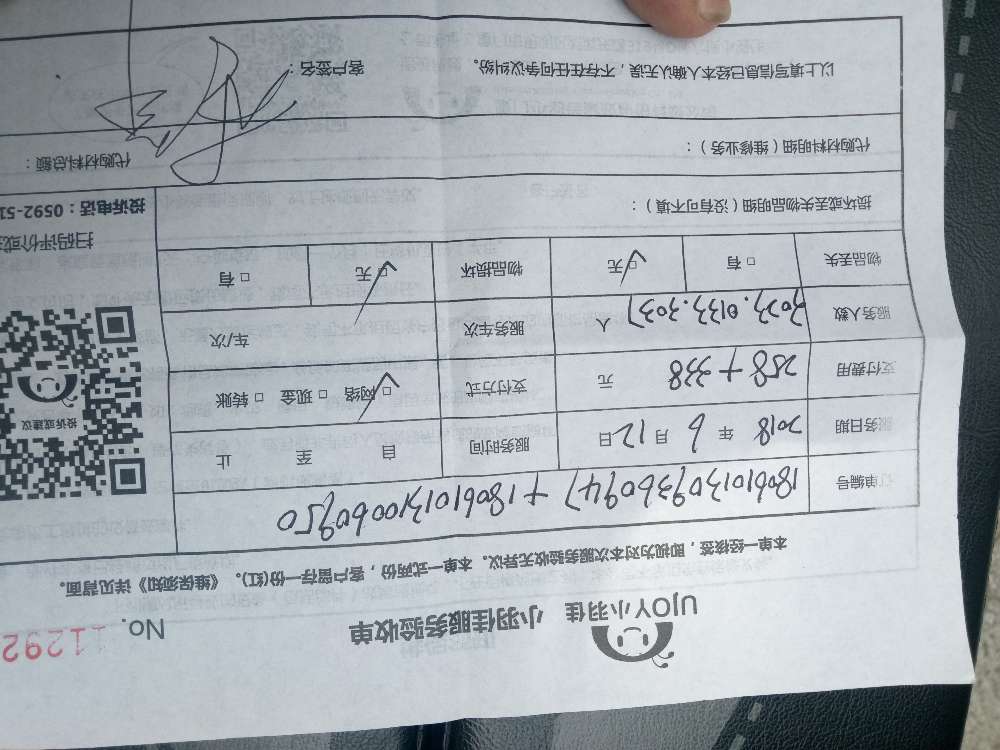 UJOY小羽佳 小羽佳服务验收单 No. 11292
本单一经接签，即视为对本次服务验收无异议。本单一式两份，客户留存一份(红)。《维保须知》详见背面。
订单编号 1806101309360947+18061013100060950
服务日期 2018 年 6 月 12 日 服务时间 自 至 止
支付费用 258+338 元 支付方式 □ 网络 □ 现金 □ 转账
服务人数 人 服务车次 车/次
物品丢失 □ 有 □ 无 物品损坏 □ 无 □ 有
投诉或建议
扫码评价或
投诉电话：0592-51
损坏或丢失物品明细（没有可不填）：
代购材料明细（维修业务）： 代购材料总额：
以上填写信息已经本人确认无误，不存在任何争议纠纷。 客户签名：